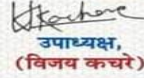 उपाध्यक्ष,
(विजय कचरे)